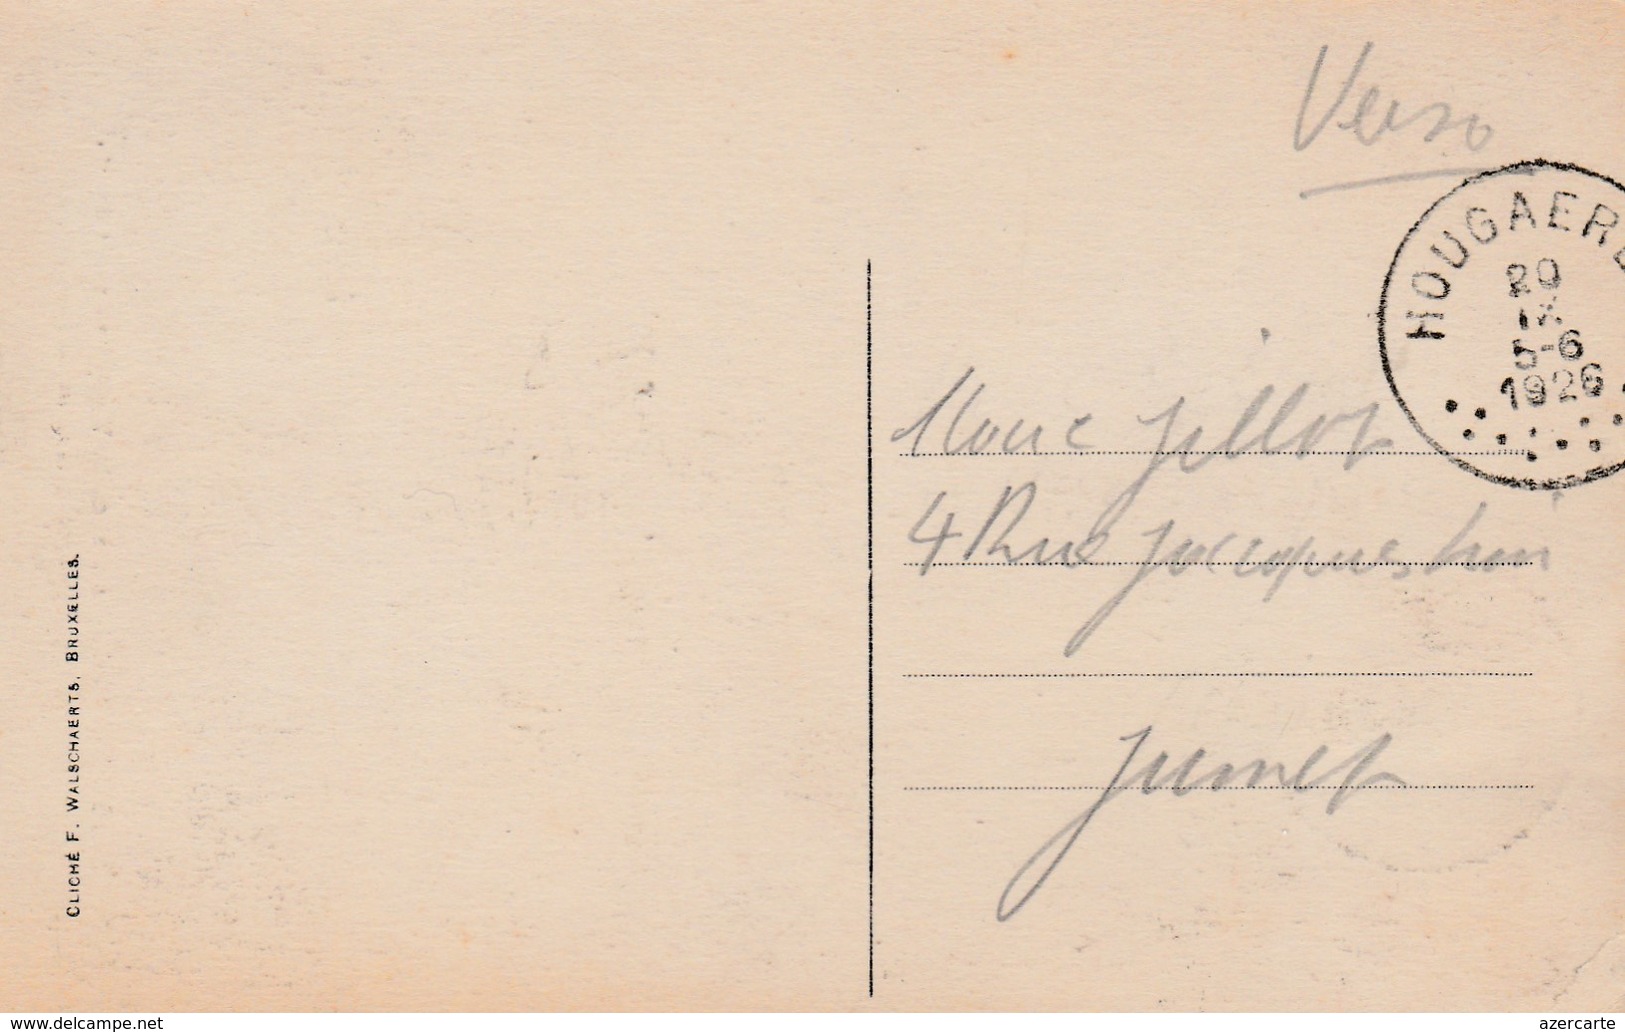 Verso
HOUGAERD
20
IX
5-6
1926
Jillot
4 Rue Jacques
Jumet
CLICHÉ F. WALSCHAERTS, BRUXELLES.
www.delcampe.net
azercarte